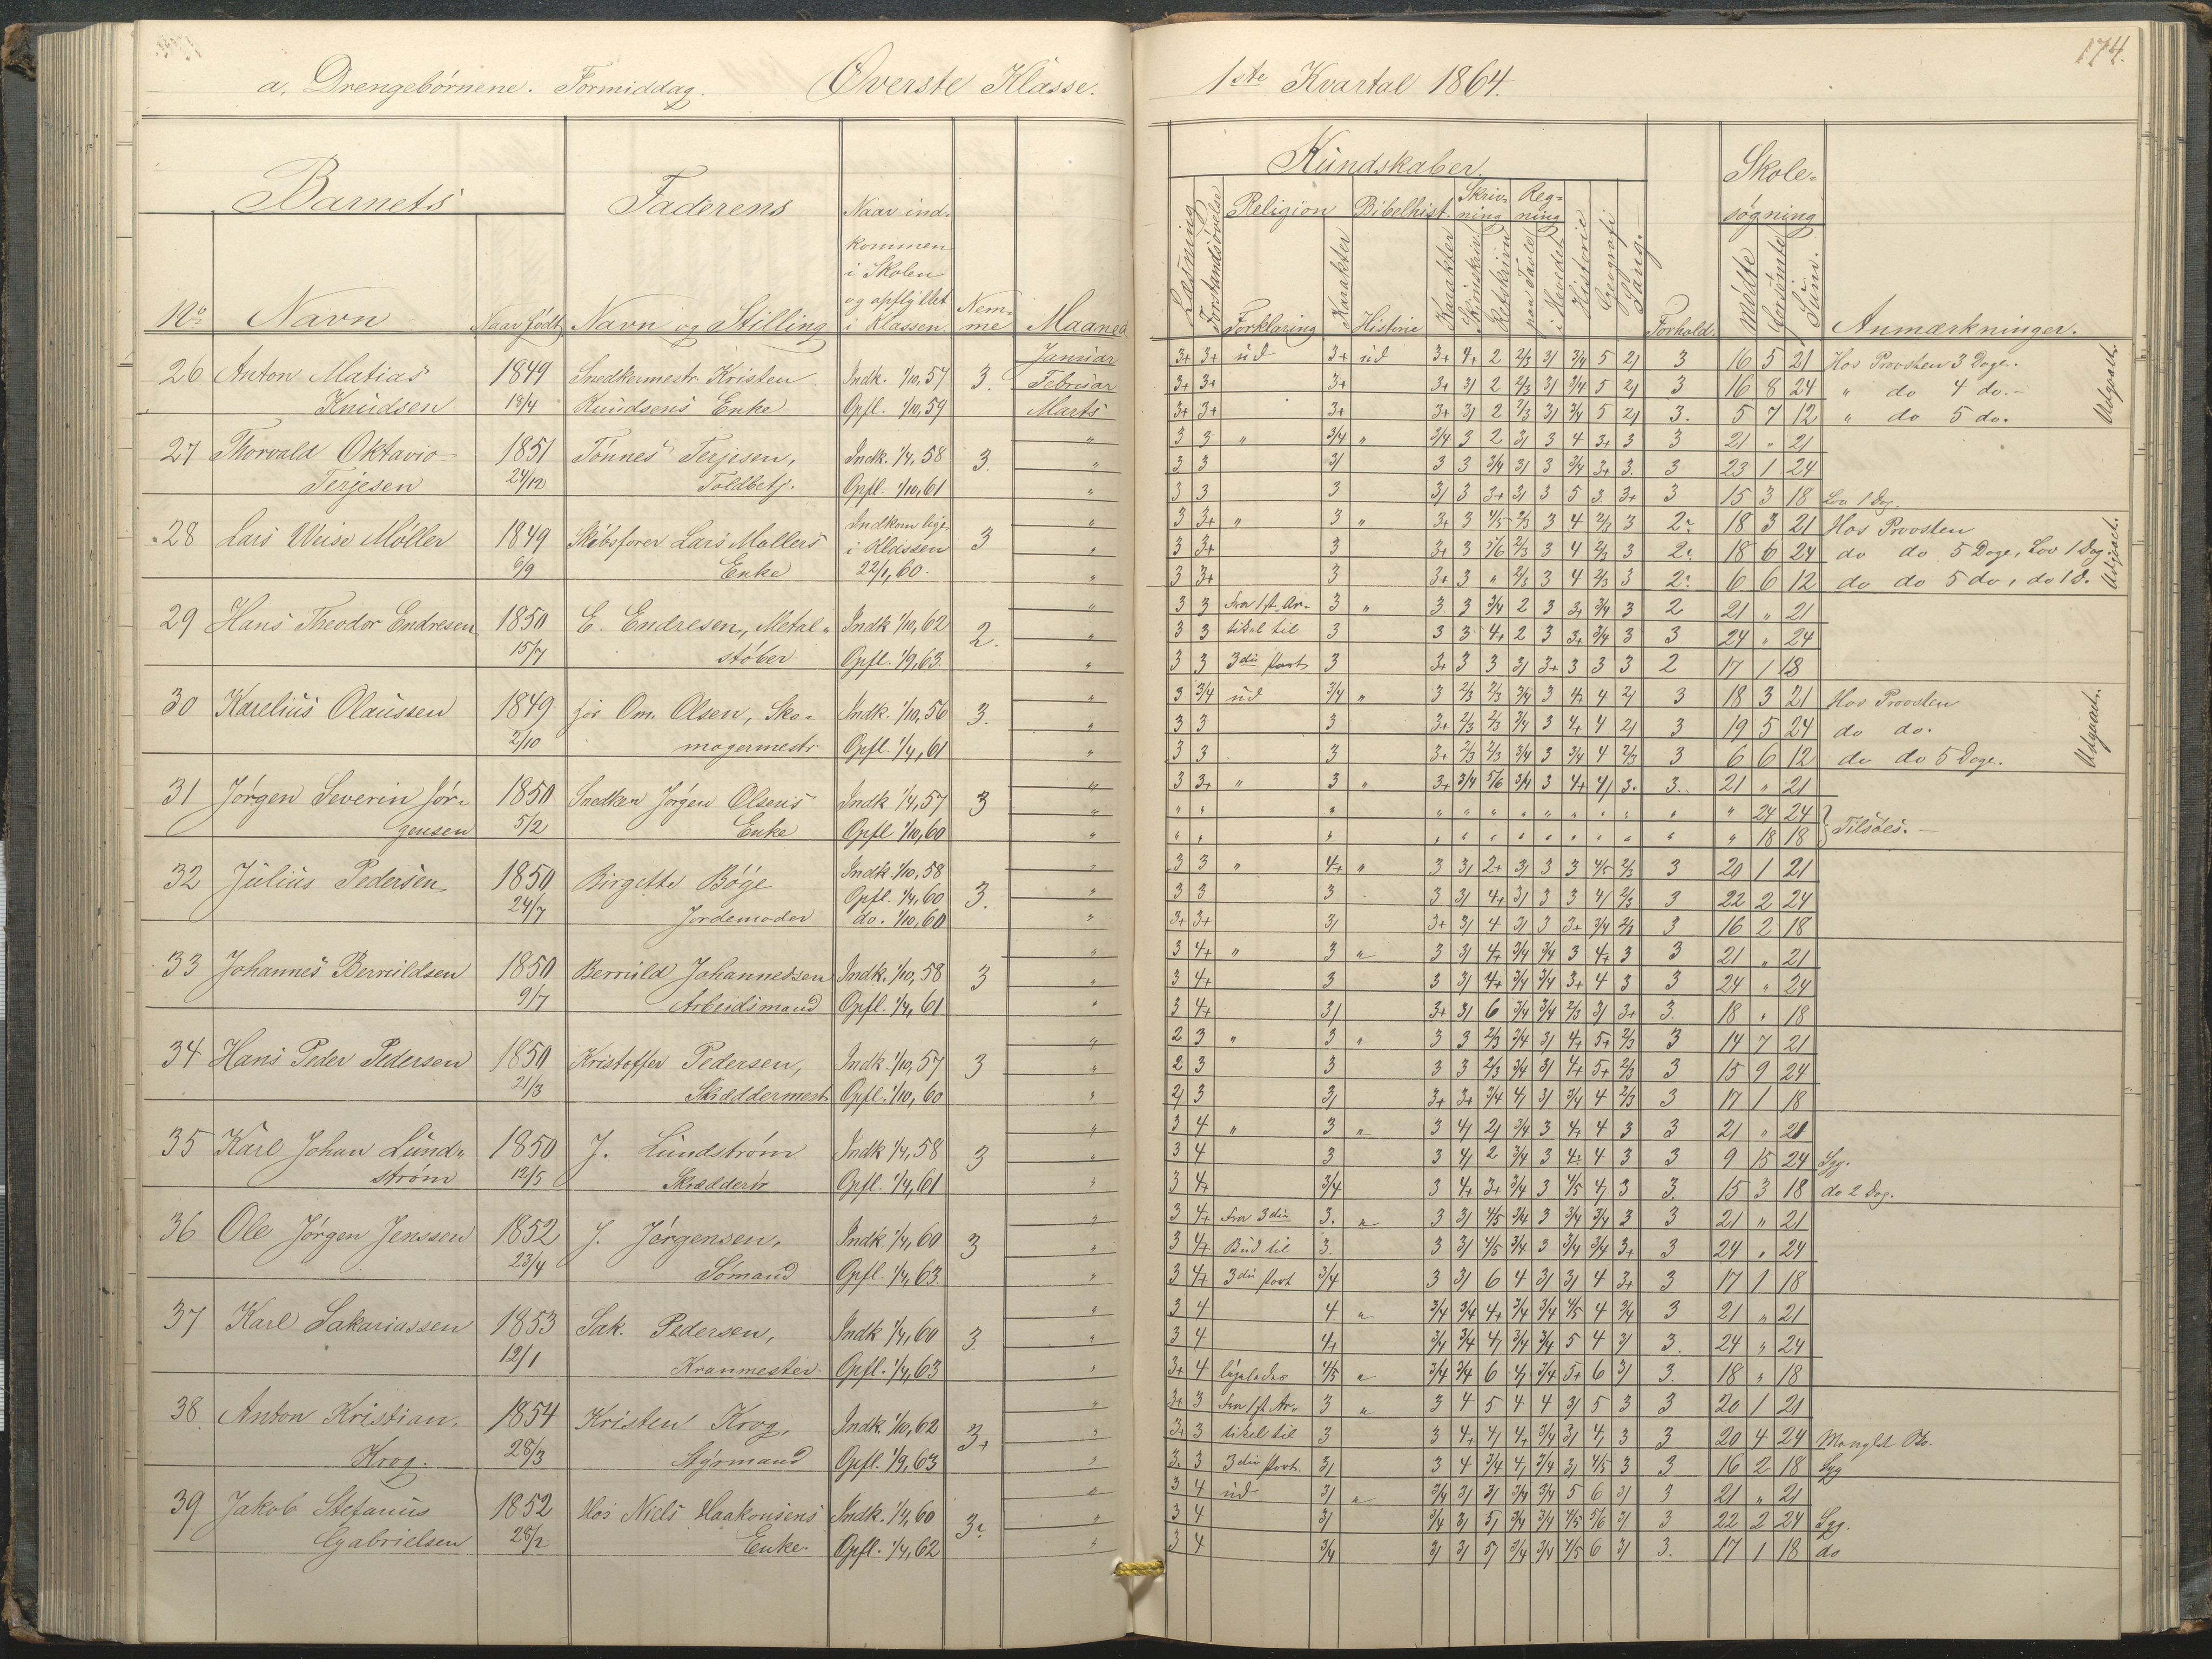 a. Drengebørnene. Formiddag. Øverste Klasse.
Barnets
Faderens
Naar ind-
kommen
i Skolen
og opflyttet
i Klassen
No
Navn
Naar født
Navn og Stilling
Nem-
me
Maaned
26 Anton Matias 1849 Snedkermestr. Kristen Indk. 1/10, 57 3. Januar
Februar
Knudsen 18/4 Knudsens Enke Opfl. 1/10, 59 Marts
27 Thorvald Oktavio 1851 Tønnes Terjesen, Indk. 1/4, 58 3. "
"
Terjesen 24/12 Toldbetj. Opfl. 1/10, 61 "
28 Lars Weise Møller 1849 Skibsfører Lars Møllers Indkom lige 3 "
i Klassen "
6/9 Enke 22/1, 60. "
29 Hans Theodor Endresen 1850 E. Endresen, Metal- Indk 1/10, 62 2. "
"
15/7 støber Opfl. 1/9, 63. "
30 Karelius Olaussen 1849 Om. Olsen, Sko- Indk. 1/10, 56 3. "
"
2/10 magermestr Opfl. 1/4, 61 "
31 Jørgen Severin Jør- 1850 Snedker Jørgen Olsens Indk 1/4, 57 3 "
"
gensen 5/2 Enke Opfl 1/10, 60 "
32 Julius Pedersen 1850 Birgitte Bøge Indk. 1/10, 58 3. "
Opfl. 1/4, 60 "
24/7 Jordemoder do. 1/10, 60 "
33 Johannes Berruldsen 1850 Berruld Johannessen Indk. 1/10, 58 3 "
"
9/7 Arbeidsmand Opfl. 1/4, 61 "
34 Hans Peder Pedersen 1850 Kristoffer Pedersen, Indk. 1/10, 57 3 "
"
21/3 Skræddermest. Opfl. 1/10, 60 "
35 Karl Johan Lund- 1850 J. Lundstrøm Indk 1/4, 58 3 "
"
strøm 12/5 Skrædder Opfl. 1/4, 61 "
36 Ole Jørgen Jenssen 1852 J. Jørgensen, Indk 1/4, 60 3 "
"
23/4 Sømand Opfl. 1/4, 63 "
37 Karl Sakariassen 1853 Sak. Pedersen, Indk 1/4, 60 3. "
"
12/1 Kranmester Opfl. 1/4, 63 "
38 Anton Kristian 1854 Kristen Krog, Indk. 1/10, 62 3+ "
"
Krog. 28/3 Styrmand Opfl. 1/9, 63 "
39 Jakob Stefanus 1852 Hos Niels Haakonsens Indk. 1/4, 60 3 "
"
Gabrielsen 28/2 Enke. Opfl. 1/4, 62 "
174.
1ste Kvartal 1864.
Kundskaber.
Skole-
søgning
Læsning
Forstandsøvelse
Religion
Forklaring
Karakter
Bibelhist.
Historie
Karakter
Skriv-
ning
Skjønskriv.
Retskrivn
Reg-
ning
paa Tavle
i Hovedet
Historie
Geografi
Sang.
Forhold.
Mødte
Forsømte
Sum.
Anmærkninger.
3+ 3+ ud 3+ ud 3+ 4+ 2 2/3 3/ 3/4 5 2/ 3 16 5 21 Hos Provsten 3 Dage.
3+ 3+ 3+ 3+ 3/ 2 2/3 3/ 3/4 5 2/ 3 16 8 24 " do 4 do.
3+ 3+ 3+ 3+ 3/ 2 2/3 3/ 3/4 5 2/ 3. 5 7 12 " do 5 do.
Udgaaet.
3 3 " 3/4 " 3/4 3 2 3/ 3 4 3+ 3 3 21 " 21
3 3 3/ 3 3 3/4 3/ 3 3/4 3+ 3. 3 23 1 24
3 3 3 3/ 3 3+ 3/ 3 5 3 3+ 3 15 3 18 Lov 1 Dag.
3 3+ " 3 " 3+ 3 4/5 2/3 3 4 2/3 3 2 18 3 21 Hos Provsten
3 3+ 3 3+ 3 5/6 2/3 3 4 2/3 3 2 18 6 24 do do 5 Dage, Lov 1 Dag
3 3+ 3 3+ 3 " 2/3 3 4 2/3 3 2 6 6 12 do do 5 do, do 1 d.
Udgaaet.
3 3 Fra 1st Ar- 3 " 3. 3 3/4 2 3 3+ 3/4 3 2 21 " 21
3 3 tikel til 3 3 3 4+ 2 3 3+ 3/4 3 3 24 " 24
3 3 3die Part 3 3+ 3 3 3/ 3+ 3 3 3 2 17 1 18
3 3/4 ud 3/4 " 3 2/3 2/3 3/4 3 4+ 4 2/ 3 18 3 21 Hos Provsten
3 3 3 3+ 2/3 2/3 3/4 3 4+ 4 2/ 3 19 5 24 do do.
3 3 3 3+ 2/3 2/3 3/4 3 3/4 4 2/3 3 6 6 12 do do 5 Dage.
Udgaaet.
3 3+ " 3 " 3+ 3/4 5/6 3/4 3 4+ 4/ 3. 3. 21 " 21
" " " " " " " " " " " " " 24 24
" " " " " " " " " " " " " 18 18 } Tilsøes.
3 3 " 4+ " 3 3/ 2+ 3/ 3 3 4/5 2/3 3 20 1 21
3 3 3 3 3/ 4+ 3/ 3 3 4/ 2/3 3 22 2 24
3+ 3+ 3/ 3+ 3/ 4 3/ 3 3+ 3/4 2/3 3 16 2 18
3 4+ " 3 " 3 3/ 4+ 3/4 3/4 3 4+ 3 3 21 " 21
3 4+ 3 3 3/ 4+ 3/4 3/4 3+ 4 3 3 24 " 24
3 4+ 3/ 3+ 3/ 6 3/4 3/4 2/3 3/ 3+ 3. 18 " 18
2 3 " 3 " 3 3 2/3 3/4 3/ 4+ 5+ 2/3 3 14 7 21
2 3 3 3 3 2/3 3/4 3/ 4+ 5+ 2/3 3 15 9 24
2/ 3 3/ 3+ 3+ 3/4 4/ 3/ 3/4 4 2/3 3 17 1 18
3 4 " 3 " 3 4/ 2/ 3/4 3 4+ 4 3 3 21 " 21
3 4 3 3 4/ 2 3/4 3 4+ 4 3 3 9 15 24 Syg.
3 4+ 3/4 3 4+ 3+ 3/4 3 4/5 4/ 3 3. 15 3 18 do 2 Dag.
3 4+ Fra 3die 3. " 3 3/ 4/5 3/4 3 3/4 3/4 3 3 21 " 21
3 4+ Bud til 3. 3 3/ 4/5 3/4 3 3/4 3/4 3+ 3 24 " 24
3 4+ 3die Part 3/4 3 3/ 6 4 3/ 3/ 4 3+ 3 17 1 18
3 4 4 " 3/4 3/4 4+ 3/4 3/4 4/5 4 3/4 3 21 " 21
3 4 4+ 3/4 3/4 4/ 3/4 3/4 5 4 3/ 3. 24 " 24
3+ 4 ligeledes 4/5 " 3/4 3/4 6 4/ 3/4 5+ 6 3/ 3. 18 " 18
3+ 3 Fra 1st Ar- 3 " 3 4 5 4 4 3/ 5 3 3 20 1 21
3+ 3 tikel til 3 3 4+ 4/ 4+ 3/4 3/ 4/ 3 3 20 4 24
3. 3 3die Part. 3/ 3 4 3/4 4/ 3/4 3/ 4/5 3 3 16 2 18 Syg
3 4 ud 3/ " 3/4 3/ 3/ 3/4 3/4 5 6 3/ 3 21 " 21
3 4 3/ 3/4 3/ 5/ 3/4 3/4 4/5 5/6 3/ 3 22 2 24 Syg.
3 4 3/4 3/ 3/ 5/ 3/4 3/4 4/5 6 3/ 3. 17 1 18 do